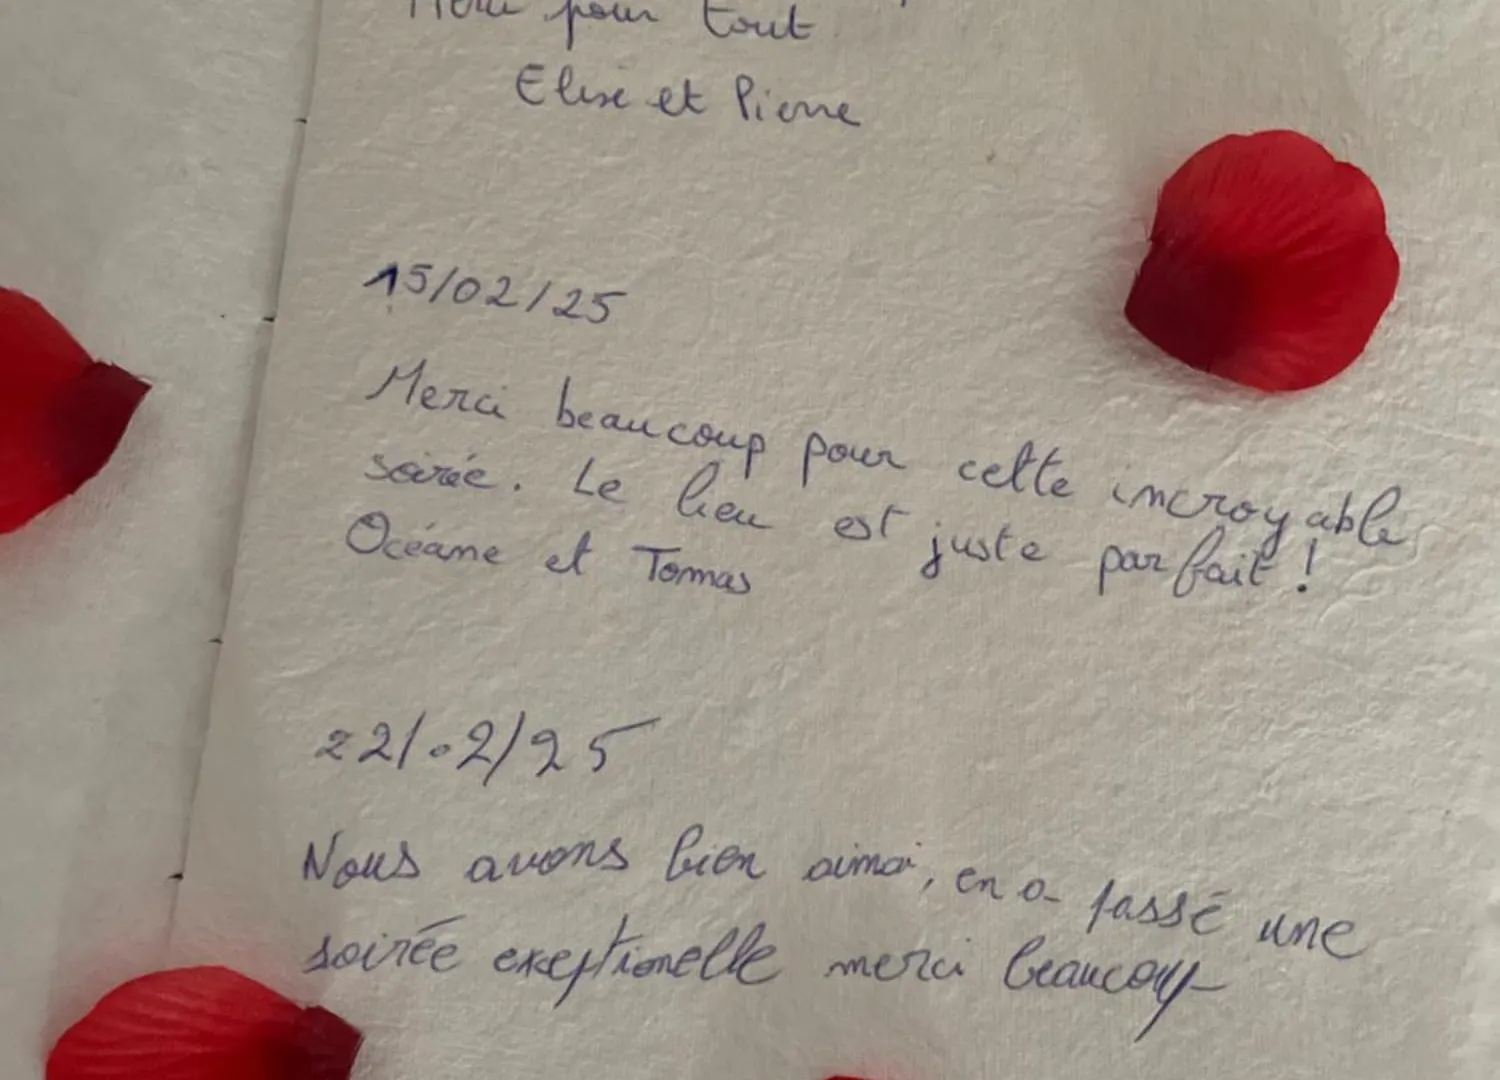 Merci pour tout
Elise et Pierre
15/02/25
Merci beaucoup pour cette incroyable
soirée. Le lieu est juste parfait !
Océane et Tomas
22/02/25
Nous avons bien aimé, on a passé une
soirée exeptionelle merci beaucoup